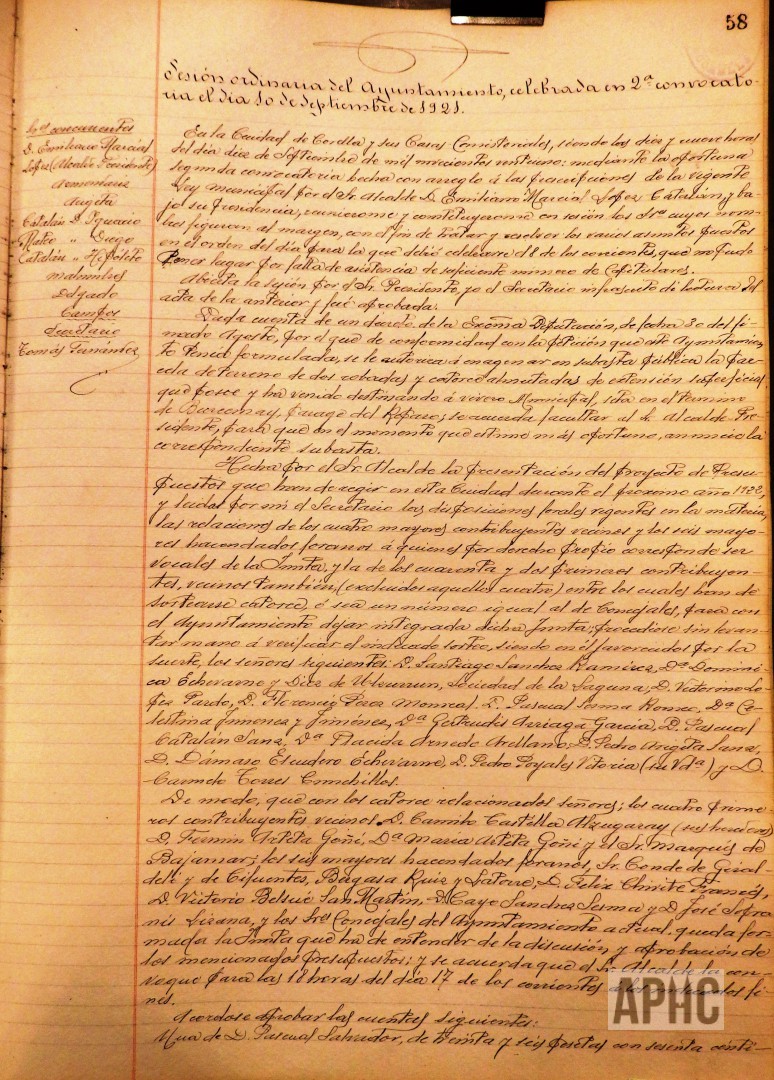 58
Sesión ordinaria del Ayuntamiento, celebrada en 2ª convocato-
ria el día 10 de Septiembre de 1921.
Sres concurrentes
D. Emiliano Marcial
López (Alcalde Presidente)
Armendáriz
Angota
Catalán D. Ignacio
Mateo " Diego
Catalán " Hipólito
Delgado
Campos
Secretario
Tomás Fernández
En la Ciudad de Corella y sus Casas Consistoriales, siendo las diez y nueve horas
del día diez de Septiembre de mil novecientos veintiuno: mediante la oportuna
segunda convocatoria hecha con arreglo á las prescripciones de la vigente
Ley municipal por el Sr. Alcalde D. Emiliano Marcial López Catalán y ba-
jo su presidencia, reuniéronse y constituyeronse en sesión los Sres cuyos nom-
bres figuran al margen, con el fin de tratar y resolver los varios asuntos puestos
en el orden del día para la que debió celebrarse el 8 de los corrientes, que no pudo
tener lugar por falta de asistencia de suficiente número de Capitulares.
Abierta la sesión por el Sr. Presidente, yo el Secretario infrascrito dí lectura del
acta de la anterior y fué aprobada.
Dada cuenta de un decreto de la Excma Diputación, de fecha 30 del fi-
nado Agosto, por el que de conformidad con la petición que este Ayuntamien-
to tenía formulada, se le autoriza á enagenar en subasta pública la par-
cela de terreno de dos robadas y catorce almutadas de extensión superficial
que posee y ha venido destinando á vivero Municipal, sita en el término
de parage del se acuerda facultar al Sr. Alcalde Pre-
sidente, para que en el momento que estime más oportuno, anuncie la
correspondiente subasta.
Hecha por el Sr. Alcalde la presentación del proyecto de Presu-
puestos que han de regir en esta Ciudad durante el próximo año 1922,
y leidas por mí el Secretario las disposiciones forales vigentes en la materia,
las relaciones de los cuatro mayores contribuyentes vecinos y los seis mayo-
res hacendados foranos á quienes por derecho propio corresponde ser
vocales de la Junta, y la de los cuarenta y dos primeros contribuyen-
tes, vecinos también (excluidos aquellos cuatro) entre los cuales han de
sortearse catorce, ó sea un número igual al de Concejales, para con
el Ayuntamiento dejar integrada dicha Junta; procediose sin levan-
tar mano á verificar el indicado sorteo, siendo en él favorecidos por la
suerte, los señores siguientes: D. Santiago Sánchez Ramírez, Dª Domini-
ca Echevarne y Díez de Ulzurrun, Sociedad de la Laguna, D. Victorino Ló-
pez Pardo, D. Florencio Pérez Monreal, D. Pascual Sesma Ronco, Dª Ce-
lestina Jimenez y Jiménez, Dª Gertrudis Arriaga García, D. Pascual
Catalán Sanz, Dª Plácida Arnedo Arellano, D. Pedro Angota Sanz,
D. Dámaso Escudero Echevarne, D. Pedro Poyales Vitoria (su Vdª) y D.
Carmelo Torres Cunchillos.
De modo, que con los catorce relacionados señores; los cuatro prime-
ros contribuyentes vecinos D. Camilo Castilla Alzugaray (sus herederos)
D. Fermín Arteta Goñi, Dª María Arteta Goñi y el Sr. Marqués de
Bajamar; los seis mayores hacendados foranos, Sr. Conde de Giral-
deli y de Cifuentes, Bagasa Ruiz y Latorre, D. Félix Chivite Francés,
D. Victorio Belsué San Martín, D. Cayo Sánchez Sesma y D. José Sopra-
nis Lizana, y los Sres Concejales del Ayuntamiento actual, queda for-
mada la Junta que ha de entender de la discusión y aprobación de
los mencionados presupuestos; y se acuerda que el Sr. Alcalde la con-
voque para las 18 horas del día 17 de los corrientes a los indicados fi-
nes.
Acordose aprobar las cuentas siguientes:
Una de D. Pascual Salvador, de treinta y seis pesetas con sesenta cénti-
APHC